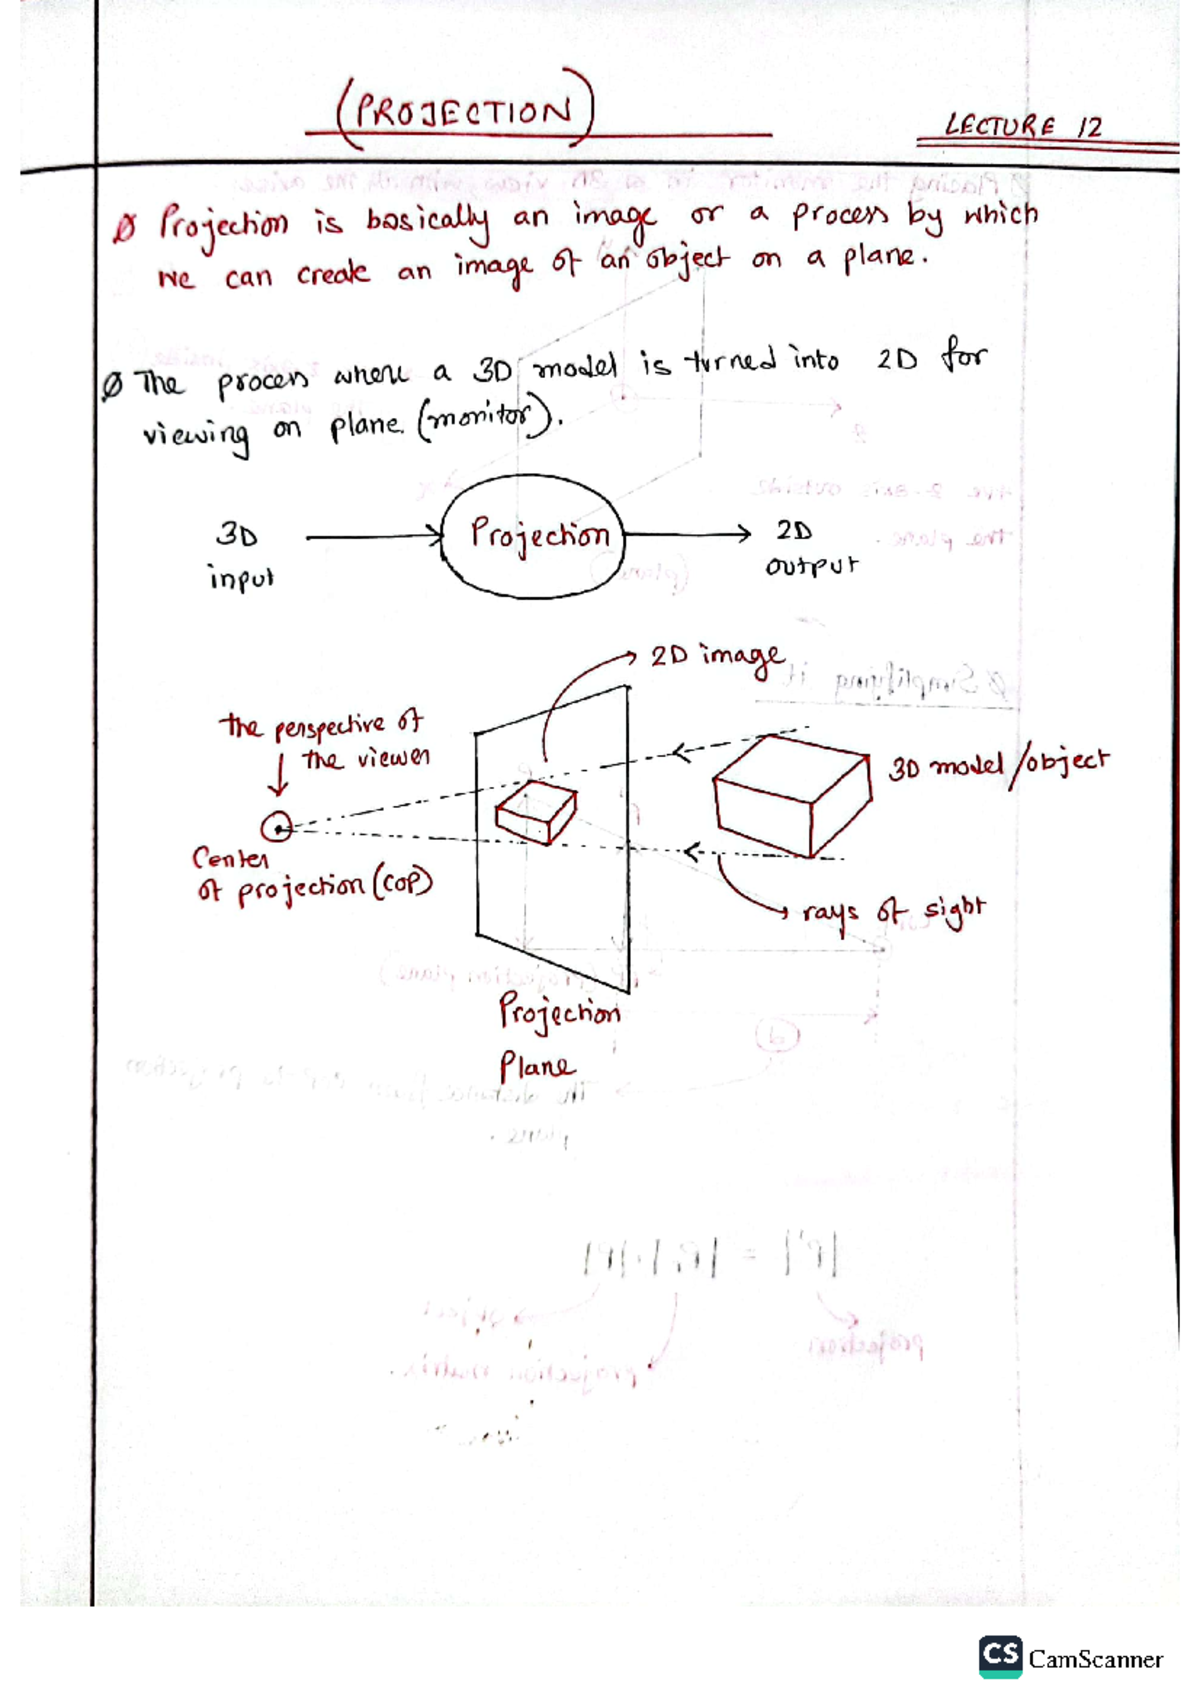 (PROJECTION)
LECTURE 12
Ø Projection is basically an image or a process by which
we can create an image of an object on a plane.
Ø The process where a 3D model is turned into 2D for
viewing on plane (monitor).
3D
input
Projection
2D
output
2D image
the perspective of
the viewer
3D model/object
Center
of projection (COP)
rays of sight
Projection
Plane
CS CamScanner